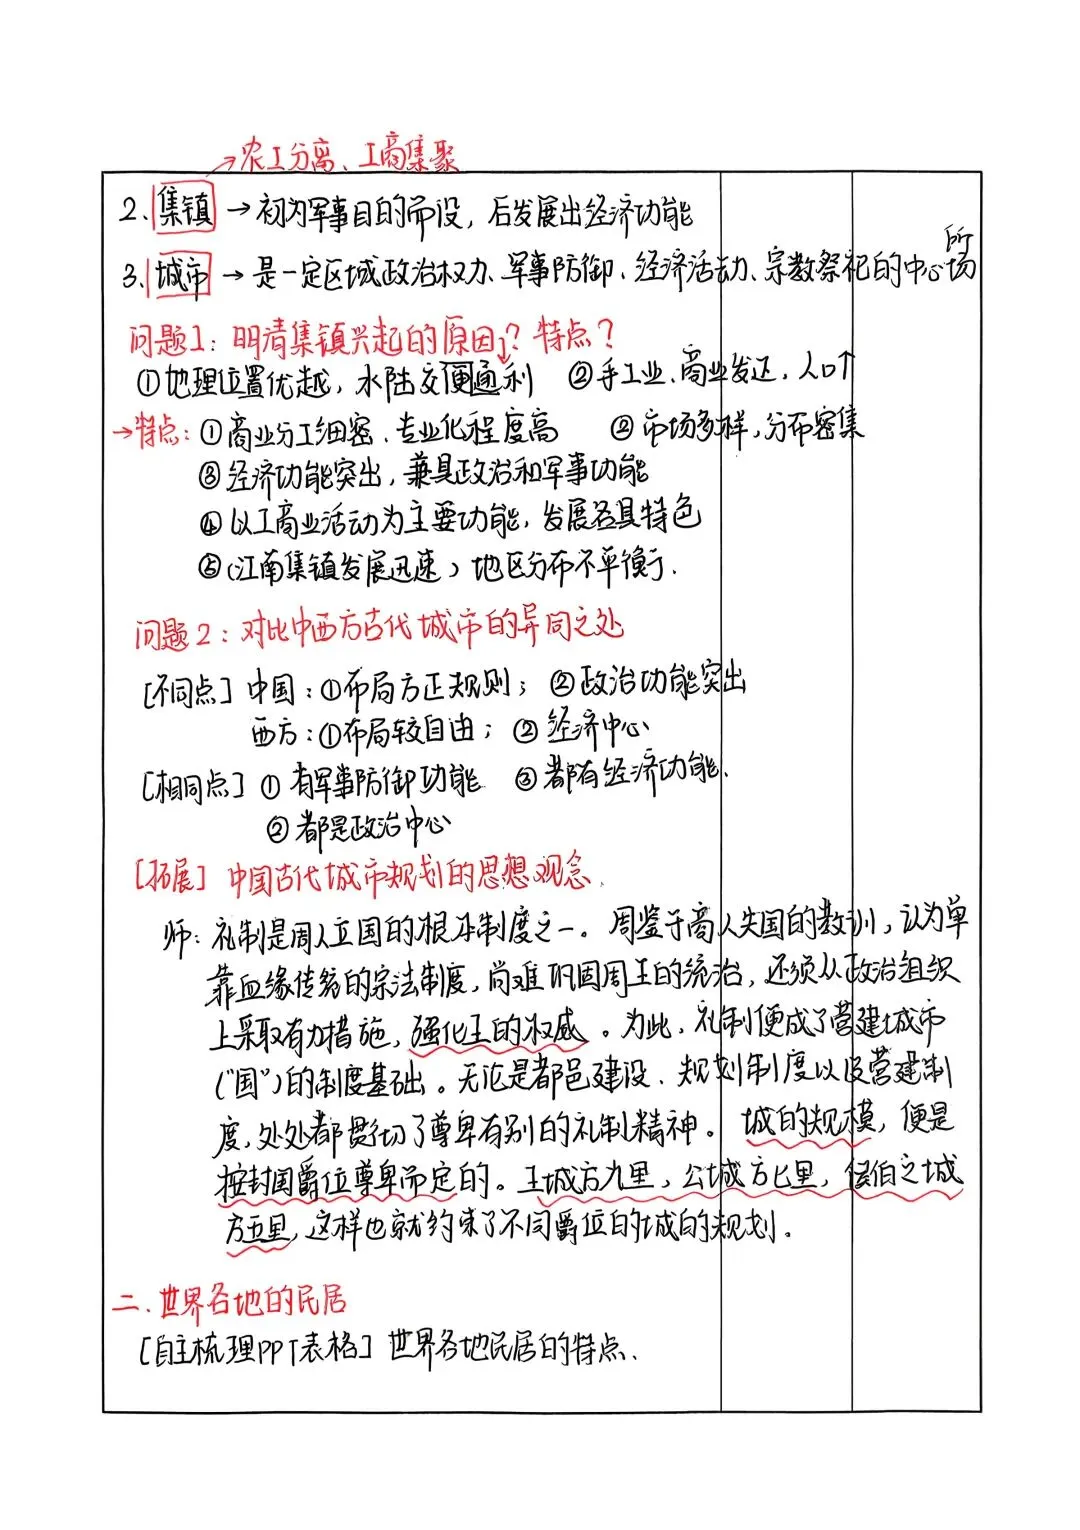 →农工分离、工商集聚
2.集镇→初为军事目的而设,后发展出经济功能
3.城市→是一定区域政治权力、军事防御、经济活动、宗教祭祀的中心场所
问题1:明清集镇兴起的原因?特点?
①地理位置优越,水陆交便通利 ②手工业、商业发达,人口↑
→特点:①商业分工细密、专业化程度高 ②市场多样,分布密集
③经济功能突出,兼具政治和军事功能
④以工商业活动为主要功能,发展各具特色
⑤(江南集镇发展迅速)地区分布不平衡.
问题2:对比中西方古代城市的异同之处
[不同点]中国:①布局方正规则;②政治功能突出
西方:①布局较自由;②经济中心
[相同点]①有军事防御功能 ③都有经济功能.
②都是政治中心
[拓展]中国古代城市规划的思想观念.
师:礼制是周人立国的根本制度之一。周鉴于商人失国的教训,认为单
靠血缘传統的宗法制度,尚难巩固周王的统治,还须从政治组织
上采取有力措施,强化王的权威。为此,礼制便成了营建城市
("国")的制度基础。无论是都邑建设、规划制度以及营建制
度,处处都贯彻了尊卑有别的礼制精神。城的规模,便是
按封国爵位尊卑而定的。王城方九里,公城方七里,侯伯之城
方五里,这样也就约束了不同爵位的城的规划.
二.世界各地的民居
[自主梳理PPT表格]世界各地民居的特点.